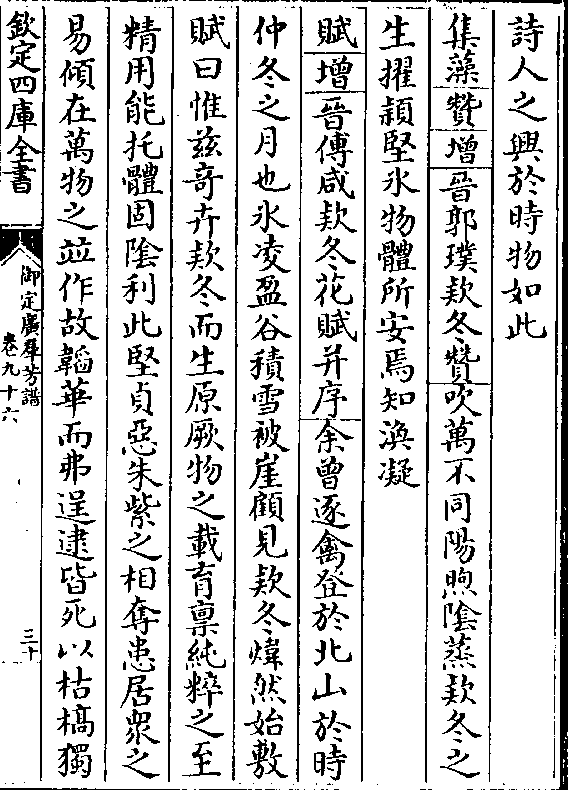 詩人之興於時物如此
集藻贊增晉郭璞欵冬贊吹萬不同陽煦陰蒸欵冬之
生擢穎堅氷物體所安焉知渙凝
賦增晉傅咸欵冬花賦并序余曾逐禽登於北山於時
仲冬之月也氷凌盈谷積雪被崖顧見欵冬煒然始敷
賦曰惟兹竒卉欵冬而生原厥物之載育稟純粹之至
精用能托體固陰利此堅貞惡朱紫之相奪患居衆之
易傾在萬物之竝作故韜華而弗逞逮皆死以枯槁獨
欽定四庫全書
御定廣羣芳譜
卷九十六
三十